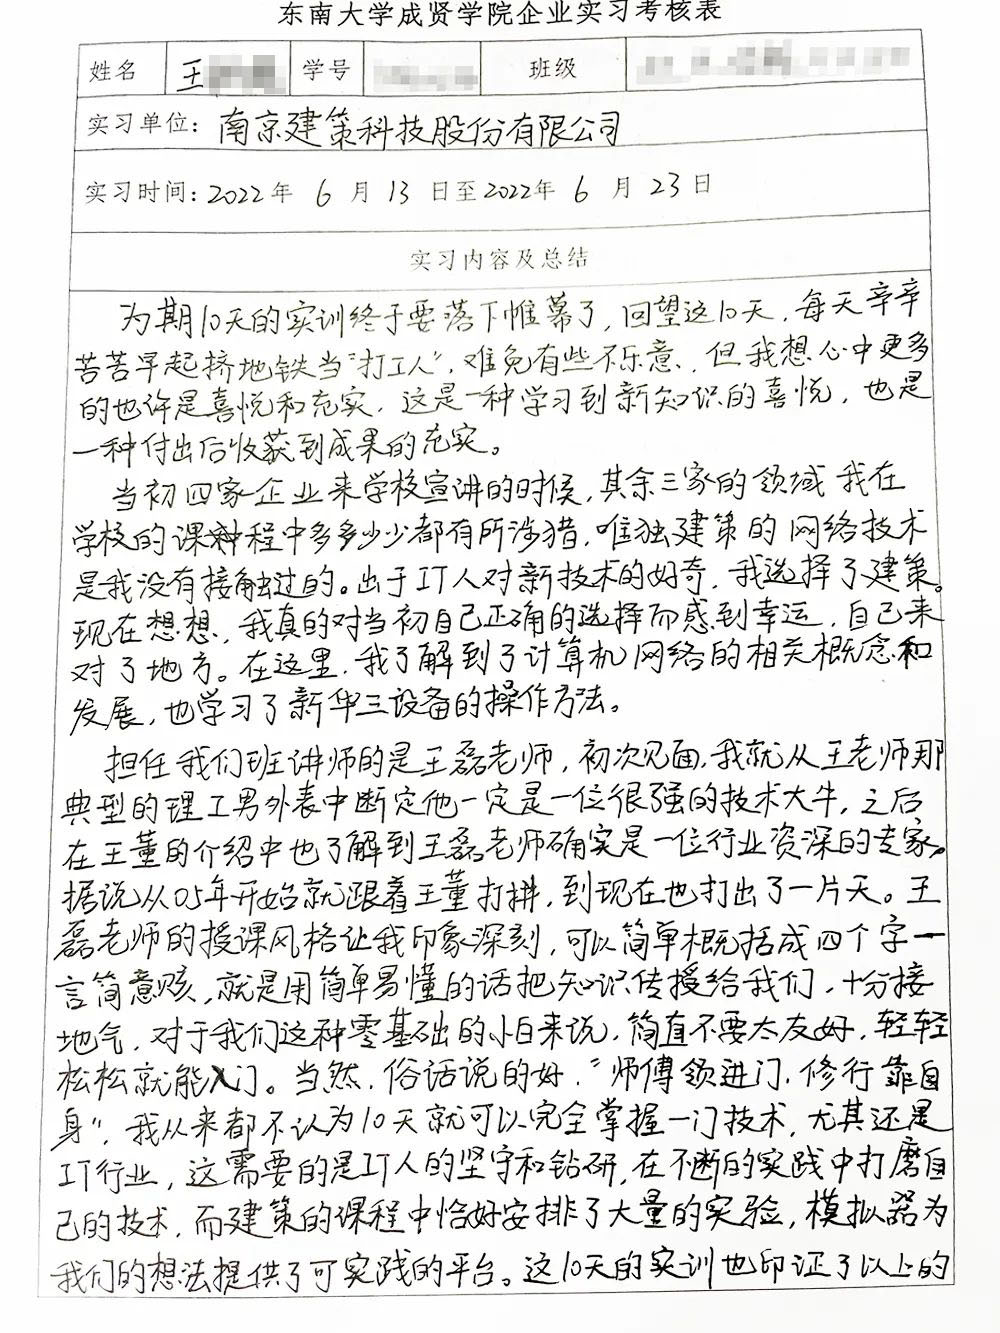 东南大学成贤学院企业实习考核表
姓名 王 学号 班级
实习单位：南京建策科技股份有限公司
实习时间：2022年 6 月 13 日至2022年 6 月 23日
实习内容及总结
为期10天的实训终于要落下帷幕了，回望这10天，每天辛辛
苦苦早起挤地铁当“打工人”，难免有些不乐意，但我想心中更多
的也许是喜悦和充实，这是一种学习到新知识的喜悦，也是
一种付出后收获到成果的充实。
当初四家企业来学校宣讲的时候，其余三家的领域我在
学校的课程中多多少少都有所涉猎，唯独建策的网络技术
是我没有接触过的。出于IT人对新技术的好奇，我选择了建策。
现在想想，我真的对当初自己正确的选择而感到幸运，自己来
对了地方。在这里，我了解到了计算机网络的相关概念和
发展，也学习了新华三设备的操作方法。
担任我们班讲师的是王磊老师，初次见面，我就从王老师那
典型的理工男外表中断定他一定是一位很强的技术大牛，之后
在王董的介绍中也了解到王磊老师确实是一位行业资深的专家。
据说从05年开始就跟着王董打拼，到现在也打出了一片天。王
磊老师的授课风格让我印象深刻，可以简单概括成四个字—
言简意赅，就是用简单易懂的话把知识传授给我们，十分接
地气，对于我们这种零基础的小白来说，简直不要太友好，轻轻
松松就能入门。当然，俗话说的好，“师傅领进门，修行靠自
身”，我从来都不认为10天就可以完全掌握一门技术，尤其还是
IT行业，这需要的是IT人的坚守和钻研，在不断的实践中打磨自
己的技术，而建策的课程中恰好安排了大量的实验，模拟器为
我们的想法提供了可实践的平台。这10天的实训也印证了以上的